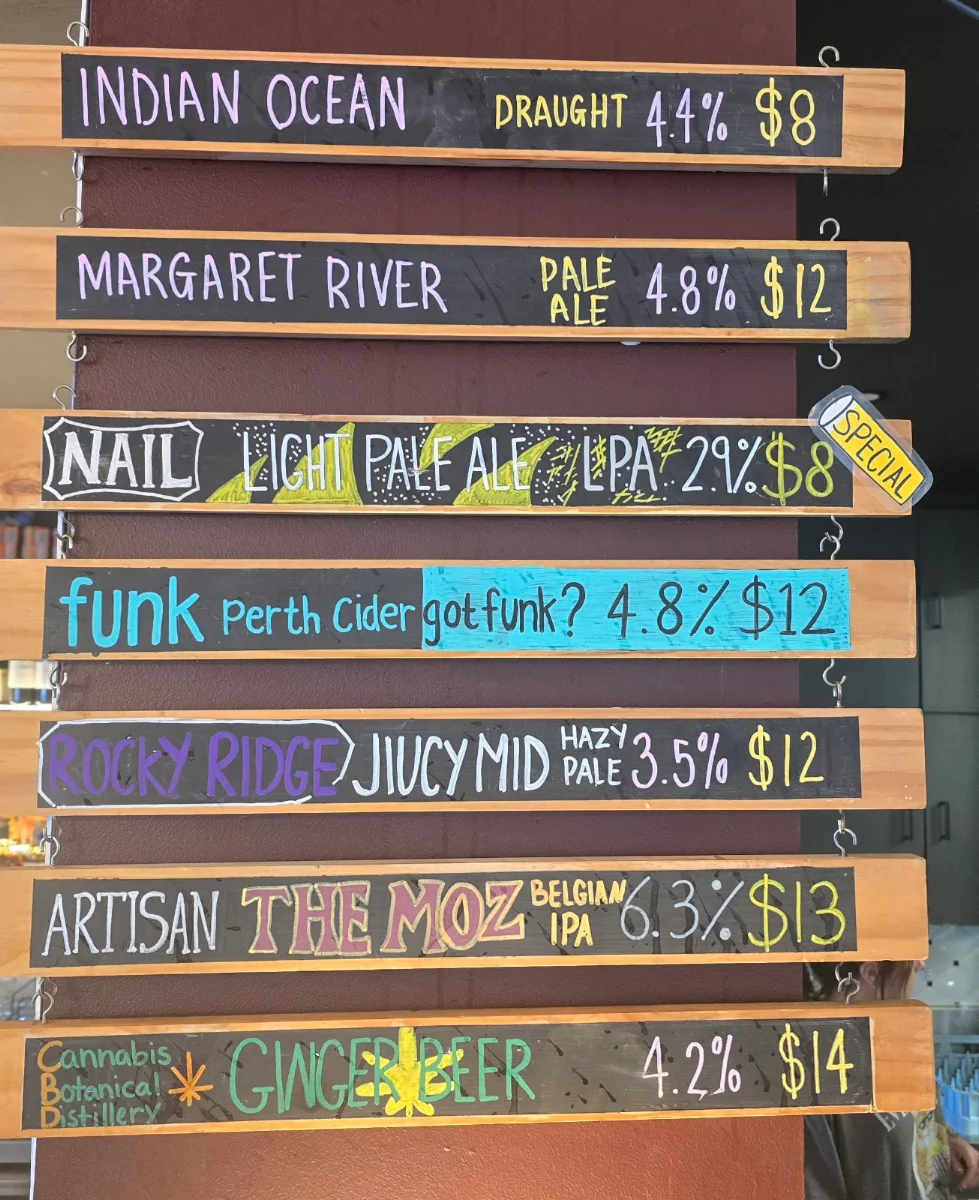 INDIAN OCEAN DRAUGHT 4.4% $8
MARGARET RIVER PALE ALE 4.8% $12
NAIL LIGHT PALE ALE LPA 29% $8 SPECIAL
funk Perth Cider got funk? 4.8% $12
ROCKY RIDGE JIUCY MID HAZY PALE 3.5% $12
ARTISAN THE MOZ BELGIAN IPA 6.3% $13
Cannabis Botanical Distillery GINGER BEER 4.2% $14